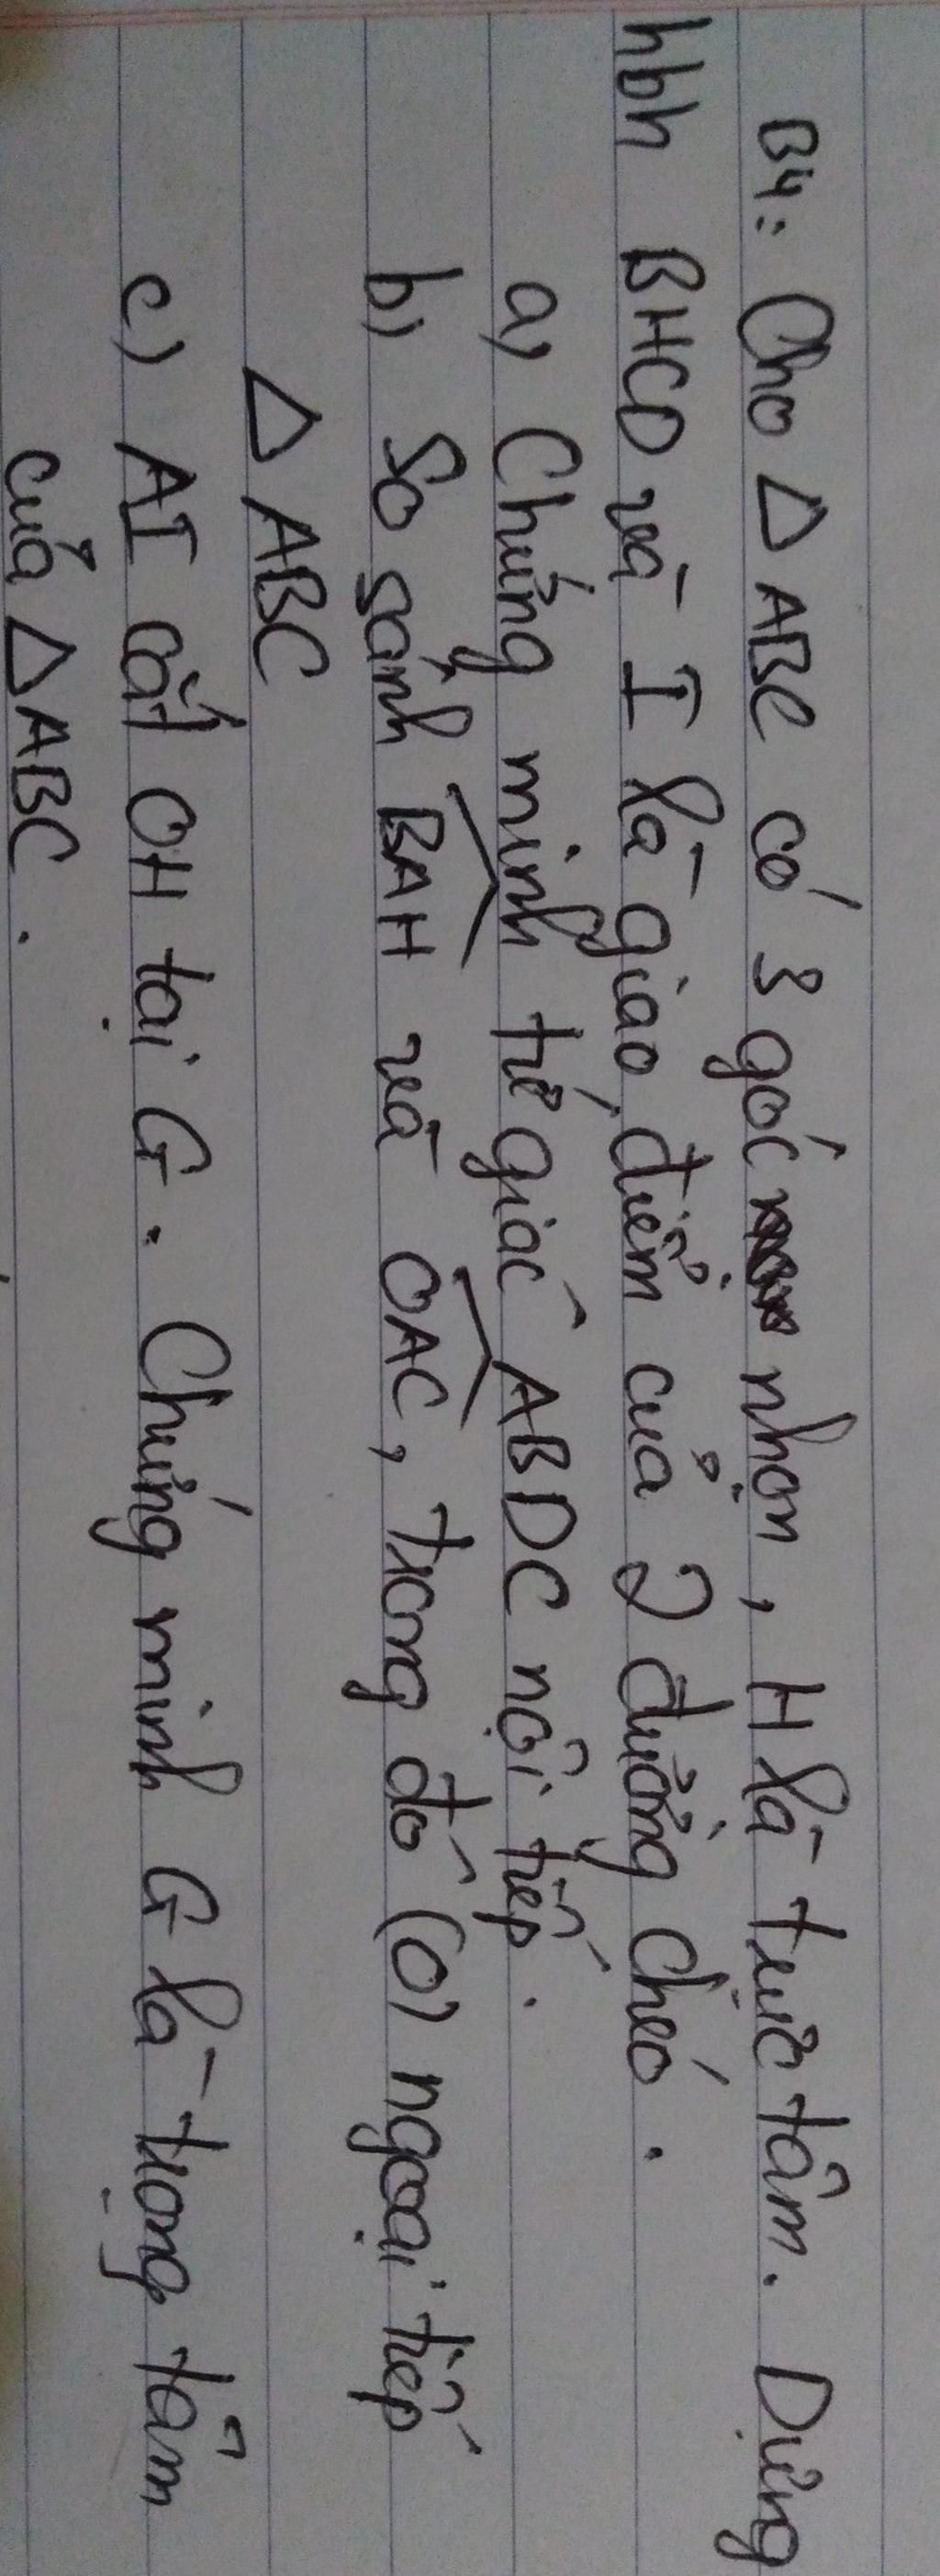 B4: Cho △ ABC có 3 góc nhọn, H là trực tâm. Dựng
hbh BHCD và I là giao điểm của 2 đường chéo.
a, Chứng minh tứ giác ABDC nội tiếp.
b, So sánh BAH và OAC, trong đó (O) ngoại tiếp
△ ABC
c) AI cắt OH tại G. Chứng minh G là trọng tâm
của △ ABC.